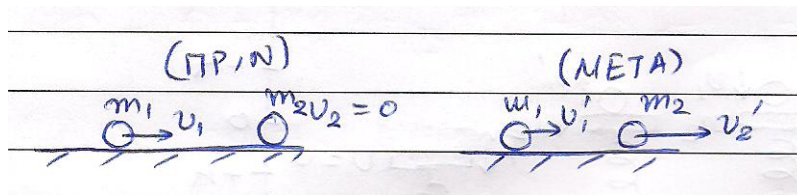 (ΠΡΙΝ) (ΜΕΤΑ)
m₁ υ₁ m₂ υ₂ = 0 m₁ υ₁′ m₂ υ₂′